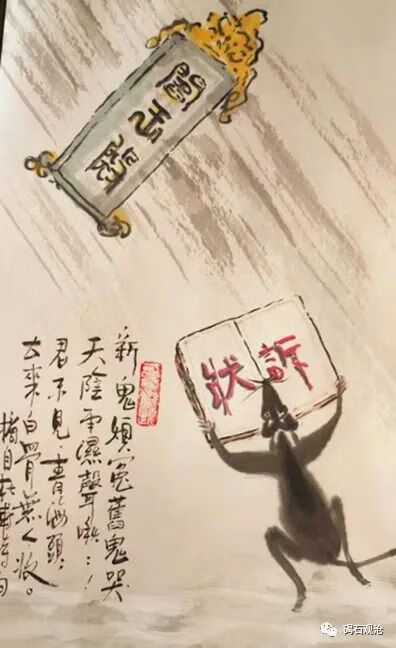 閻王殿
訴狀
新鬼煩冤舊鬼哭
天陰雨濕聲啾：！
君不見，青海頭，
古來白骨無人收。
摘自杜甫詩句
碣石观沧